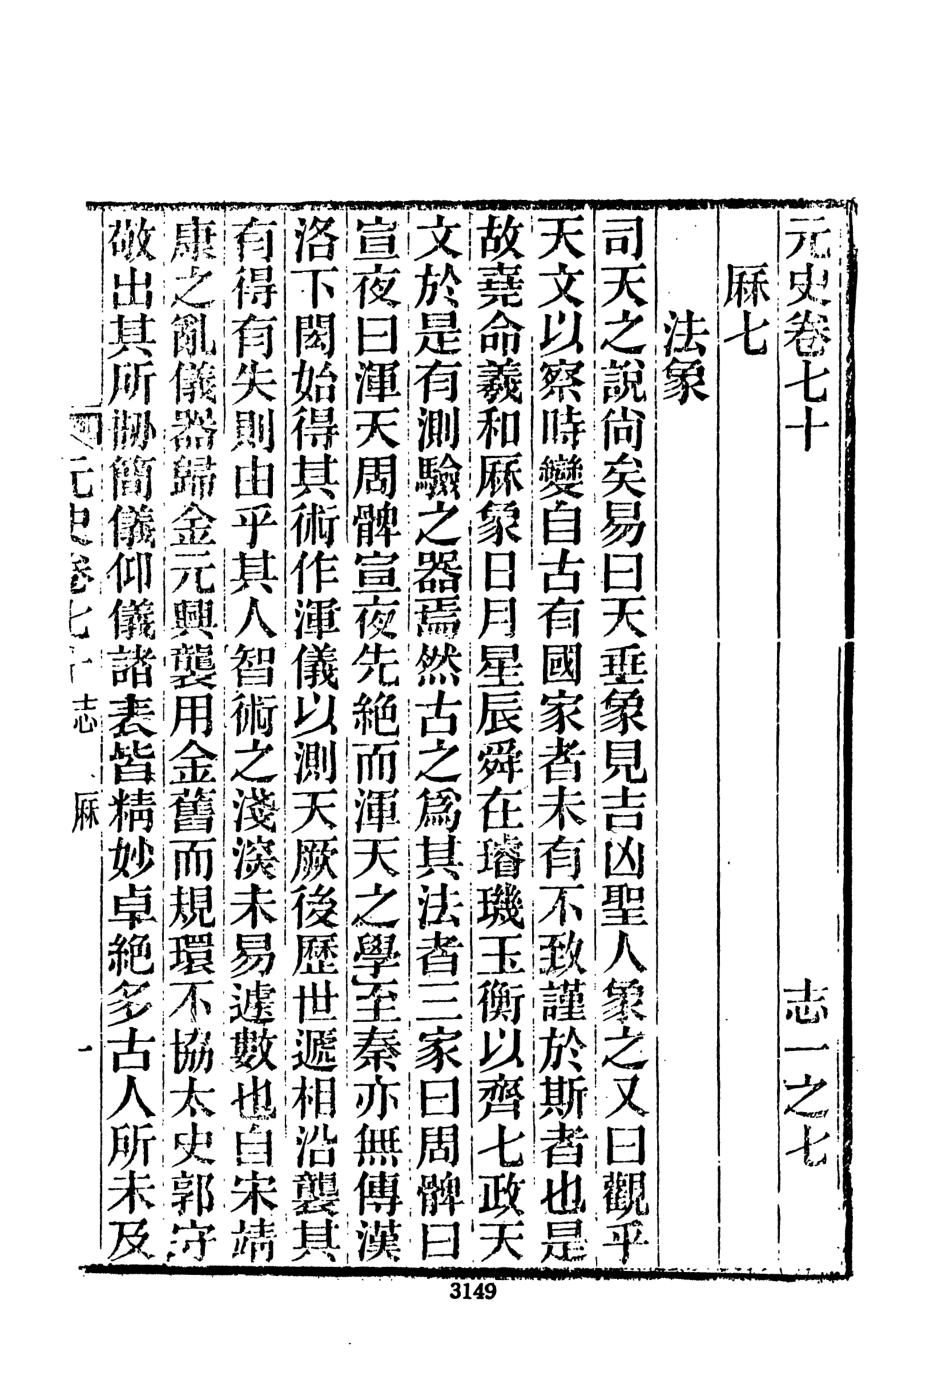 元史卷七十　志一之七
厤七
法象
司天之說尙矣易曰天垂象見吉凶聖人象之又曰觀乎
天文以察時變自古有國家者未有不致謹於斯者也是
故堯命羲和厤象日月星辰舜在璿璣玉衡以齊七政天
文於是有測驗之器焉然古之爲其法者三家曰周髀曰
宣夜曰渾天周髀宣夜先絶而渾天之學至秦亦無傳漢
洛下閎始得其術作渾儀以測天厥後歷世遞相沿襲其
有得有失則由乎其人智術之淺深未易遽數也自宋靖
康之亂儀器歸金元興襲用金舊而規環不協太史郭守
敬出其所刱簡儀仰儀諸表皆精妙卓絶多古人所未及
元史卷七十　志　厤　一
3149